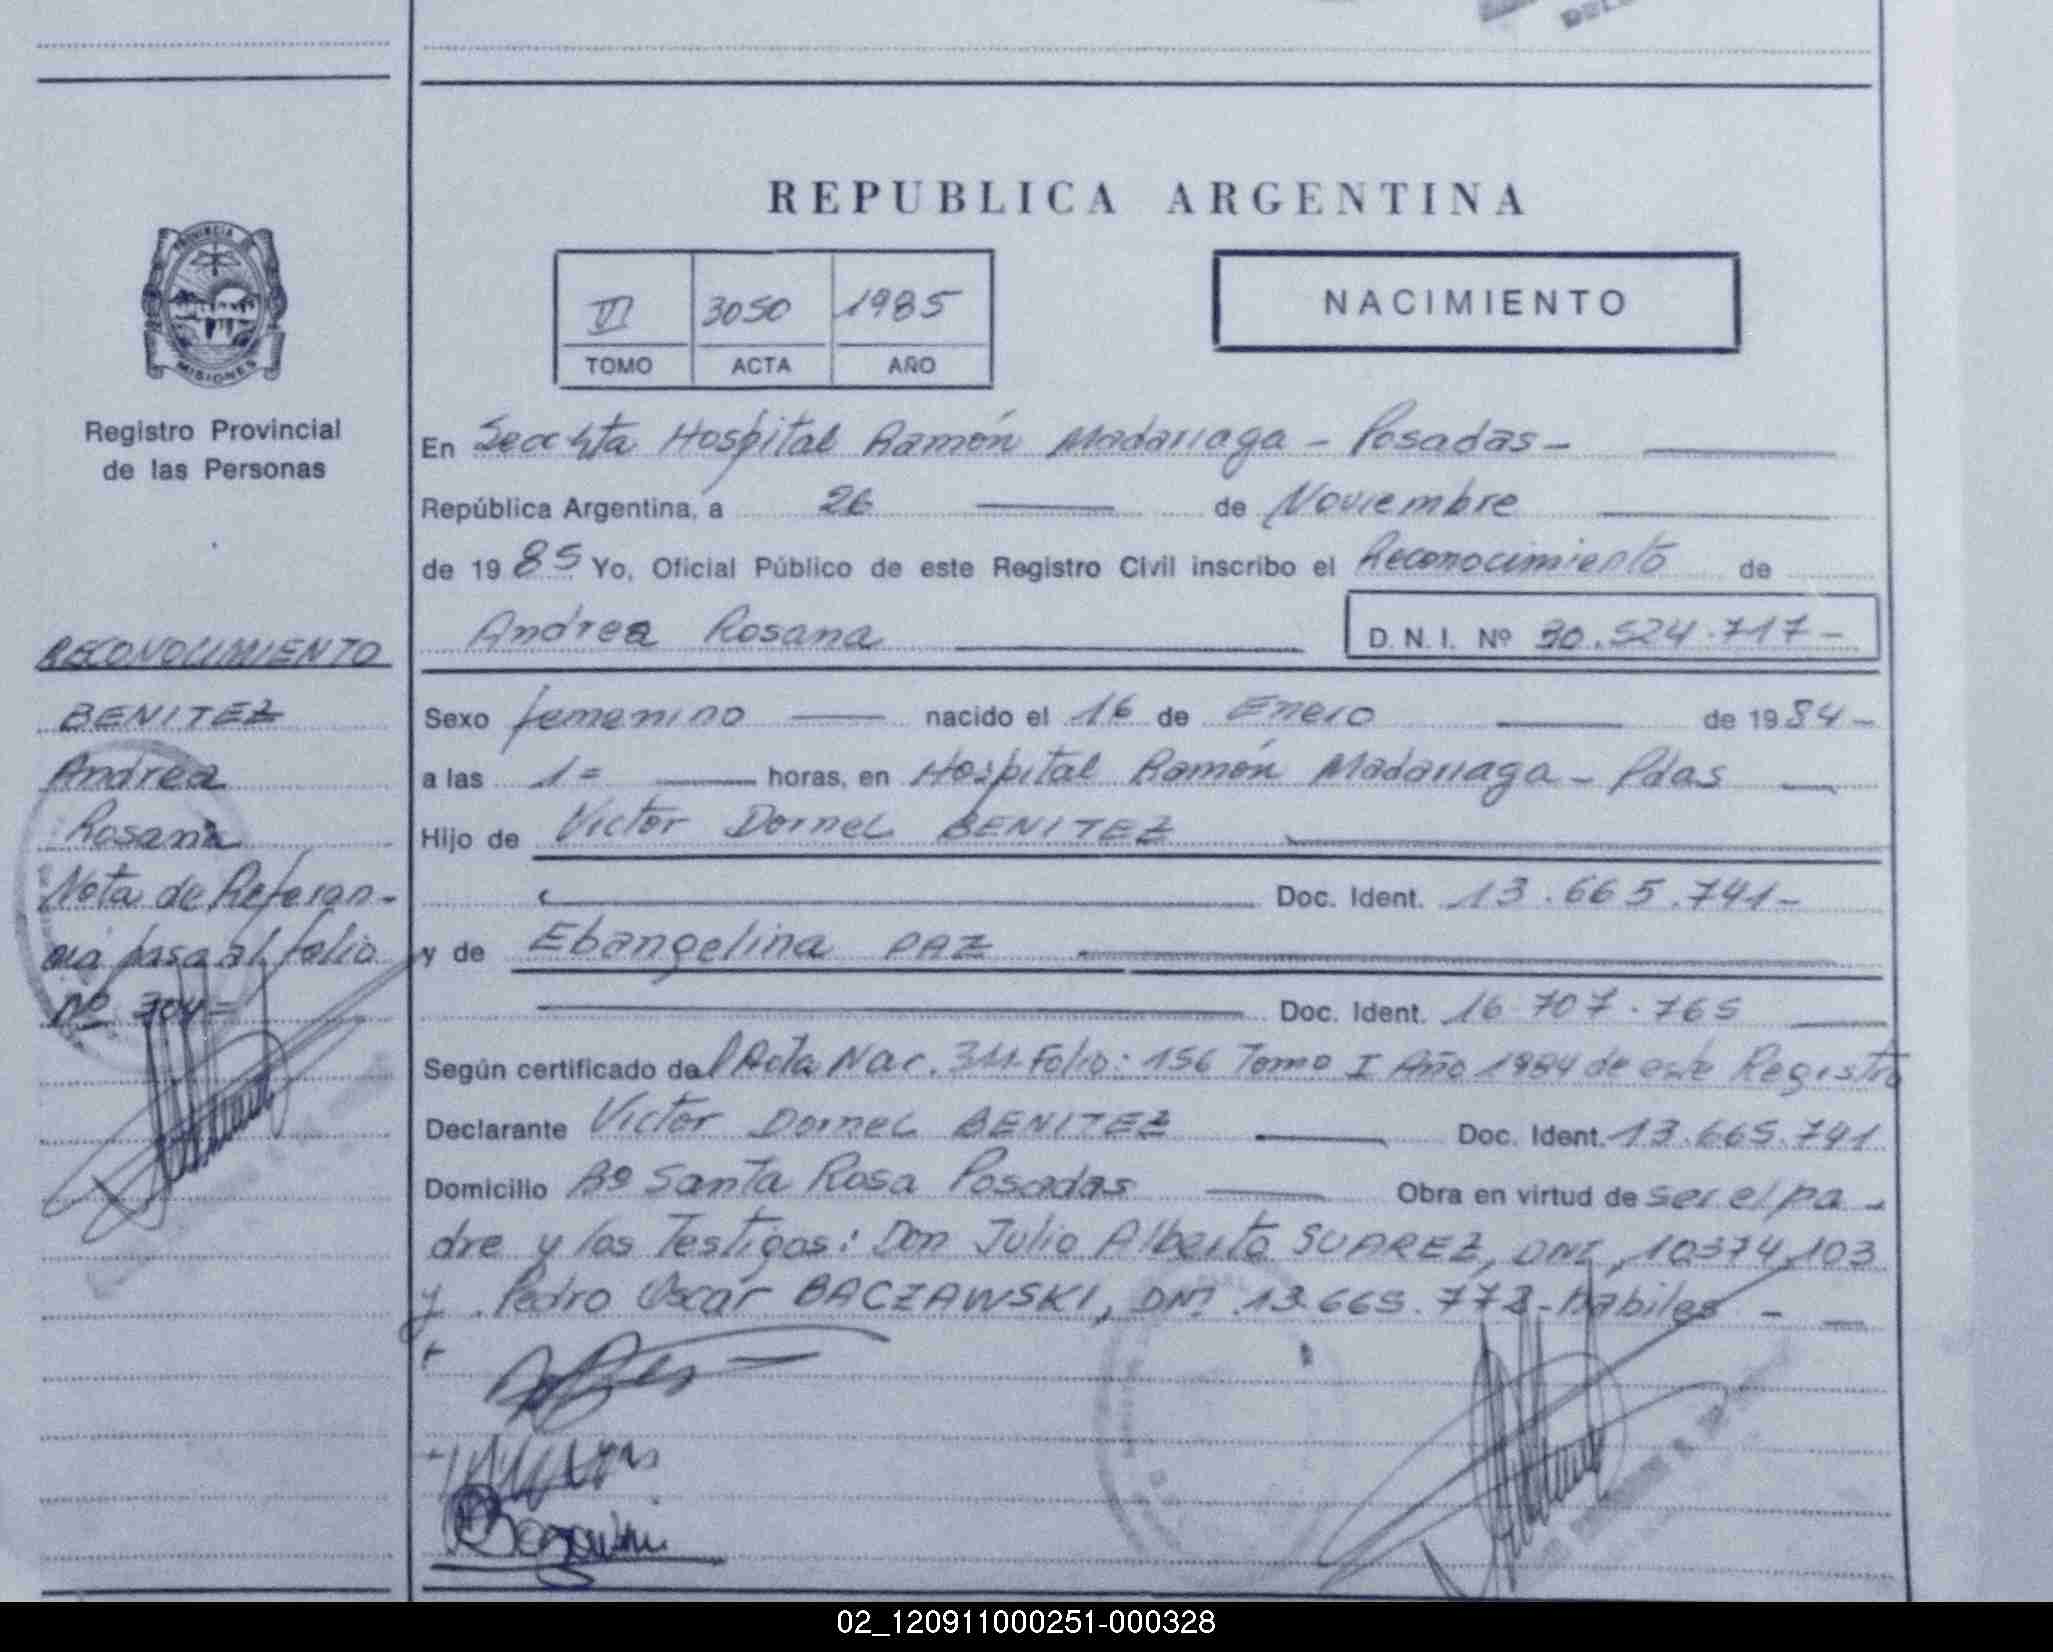 REPUBLICA ARGENTINA
VI 3050 1985
TOMO ACTA AÑO
NACIMIENTO
PROVINCIA DE
MISIONES
Registro Provincial
de las Personas
RECONOCIMIENTO
BENITEZ
Andrea
Rosana
Nota de Referen-
cia pasa al folio
Nº 304=
En Secc 4ta Hospital Ramón Madariaga - Posadas -
República Argentina, a 26 de Noviembre
de 1985 Yo, Oficial Público de este Registro Civil inscribo el Reconocimiento de
Andrea Rosana D.N.I. Nº 30.524.717-
Sexo femenino nacido el 16 de Enero de 1984-
a las 1= horas, en Hospital Ramón Madariaga - Pdas
Hijo de Victor Dornel BENITEZ
Doc. Ident. 13.665.741-
y de Ebangelina PAZ
Doc. Ident. 16.707.765
Según certificado del Acta Nac. 311 Folio: 156 Tomo I Año 1984 de este Registro
Declarante Victor Dornel BENITEZ Doc. Ident. 13.665.741
Domicilio Bº Santa Rosa Posadas Obra en virtud de ser el pa-
dre y los Testigos: Don Julio Alberto SUAREZ, DNI, 10374,103
y Pedro Oscar BACZAWSKI, DNI 13.665.772-Habiles -
02_120911000251-000328